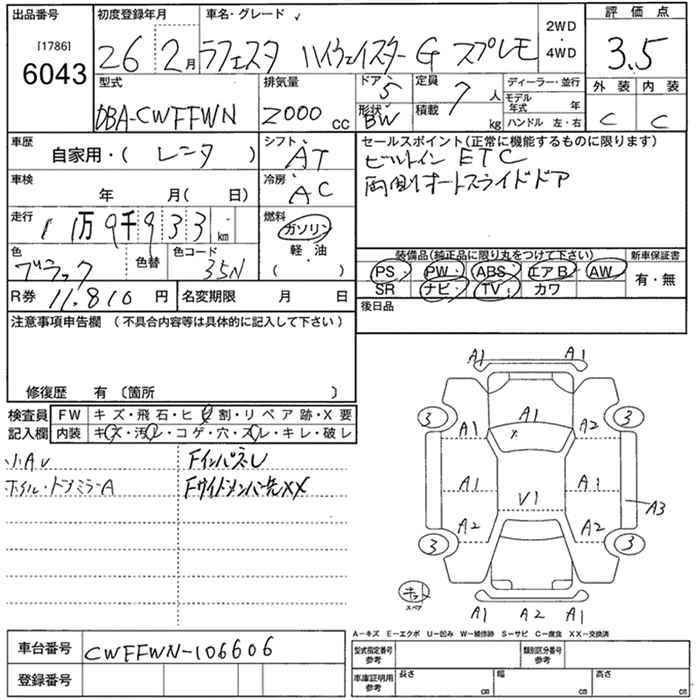 出品番号
[1786]
6043
初度登録年月
26 2月
車名・グレード
ラフェスタ ハイウェイスター G スプレモ
2WD
・
4WD
評価点
3.5
外装 内装
C C
型式
DBA-CWFFWN
排気量
2000 cc
ドア 5
形状 BW
定員 7 人
積載 kg
ディーラー・並行
モデル年式 年
ハンドル 左・右
車歴
自家用・( レンタ )
シフト
AT
セールスポイント(正常に機能するものに限ります)
ビルトイン ETC
両側オートスライドドア
車検
年 月( 日)
冷房
AC
走行
1 1万 9千 9 3 3 km
燃料
ガソリン
軽・油
( )
色
ブラック
色替
色コード
35N
装備品(純正品に限り丸をつけて下さい)
PS・ PW・ ABS・ エアB・ AW
SR ナビ・ TV・ カワ
新車保証書
有・無
R券 11,810 円
名変期限 月 日
後日品
注意事項申告欄 (不具合内容等は具体的に記入して下さい)
修復歴 有〔箇所 〕
検査員
記入欄
FW キズ・飛石・ヒビ割・リペア跡・X要
内装 キズ・汚レ・コゲ・穴・スレ・キレ・破レ
小A.U
ホイル・ドアミラーA
FインパネU
Fサイドメンバー先XX
A1 A1
3 A1 3
A1 A2
A1 V1 A1 A3
A2 A2
3 3
スペア
A1 A2 A1
A-キズ E-エクボ U-凹み W-補修跡 S-サビ C-腐食 XX-交換済
車台番号 CWFFWN-106606
登録番号
型式指定番号
参考
類別区分番号
参考
車庫証明用
参考
長さ cm
幅 cm
高さ cm